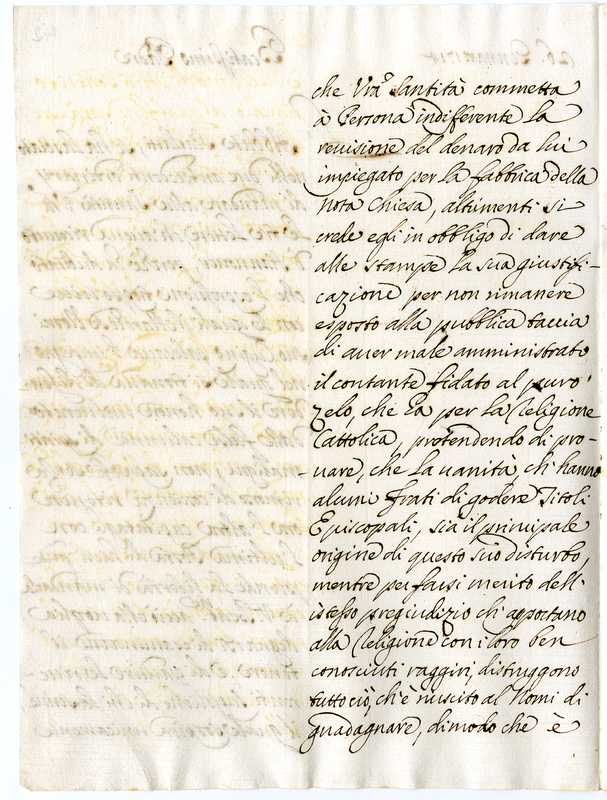 che Vrã Santità commetta
à Persona indifferente la
revisione del denaro da lui
impiegato per la fabbrica della
nota Chiesa, altrimenti si
crede egli in obbligo di dare
alle stampe la sua giustifi-
cazione per non rimanere
esposto alla pubblica taccia
di aver male amministrato
il contante fidato al puro
zelo, che ha per la Religione
Cattolica, pretendendo di pro-
vare, che la vanità ch'hanno
alcuni frati di godere Titoli
Episcopali, sia il principale
origine di questo suo disturbo,
mentre per farsi merito dell'
istesso pregiudizio ch'apportano
alla Religione con i loro ben
conosciuti raggiri, distruggono
tutto ciò, ch'è riuscito al Nomi di
guadagnare, dimodo che è